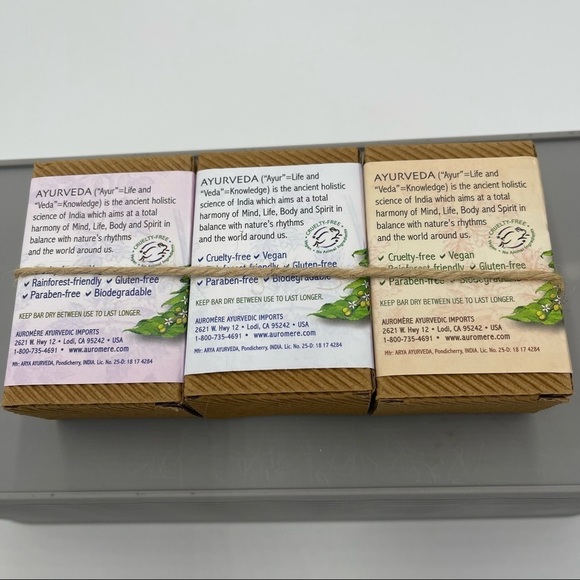 AYURVEDA ("Ayur"=Life and
"Veda"=Knowledge) is the ancient holistic
science of India which aims at a total
harmony of Mind, Life, Body and Spirit in
balance with nature's rhythms
and the world around us.
CRUELTY-FREE
✔ Rainforest-friendly ✔ Gluten-free
✔ Paraben-free ✔ Biodegradable
KEEP BAR DRY BETWEEN USE TO LAST LONGER.
AUROMÈRE AYURVEDIC IMPORTS
2621 W. Hwy 12 • Lodi, CA 95242 • USA
1-800-735-4691 • www.auromere.com
Mfr: ARYA AYURVEDA, Pondicherry, INDIA. Lic. No. 25-D: 18 17 4284
AYURVEDA ("Ayur"=Life and
"Veda"=Knowledge) is the ancient holistic
science of India which aims at a total
harmony of Mind, Life, Body and Spirit in
balance with nature's rhythms
and the world around us.
CRUELTY-FREE
✔ Cruelty-free ✔ Vegan
✔ Rainforest-friendly ✔ Gluten-free
✔ Paraben-free ✔ Biodegradable
KEEP BAR DRY BETWEEN USE TO LAST LONGER.
AUROMÈRE AYURVEDIC IMPORTS
2621 W. Hwy 12 • Lodi, CA 95242 • USA
1-800-735-4691 • www.auromere.com
Mfr: ARYA AYURVEDA, Pondicherry, INDIA. Lic. No. 25-D: 18 17 4284
AYURVEDA ("Ayur"=Life and
"Veda"=Knowledge) is the ancient holistic
science of India which aims at a total
harmony of Mind, Life, Body and Spirit in
balance with nature's rhythms
and the world around us.
CRUELTY-FREE
✔ Cruelty-free ✔ Vegan
✔ Rainforest-friendly ✔ Gluten-free
✔ Paraben-free ✔ Biodegradable
KEEP BAR DRY BETWEEN USE TO LAST LONGER.
AUROMÈRE AYURVEDIC IMPORTS
2621 W. Hwy 12 • Lodi, CA 95242 • USA
1-800-735-4691 • www.auromere.com
Mfr: ARYA AYURVEDA, Pondicherry, INDIA. Lic. No. 25-D: 18 17 4284